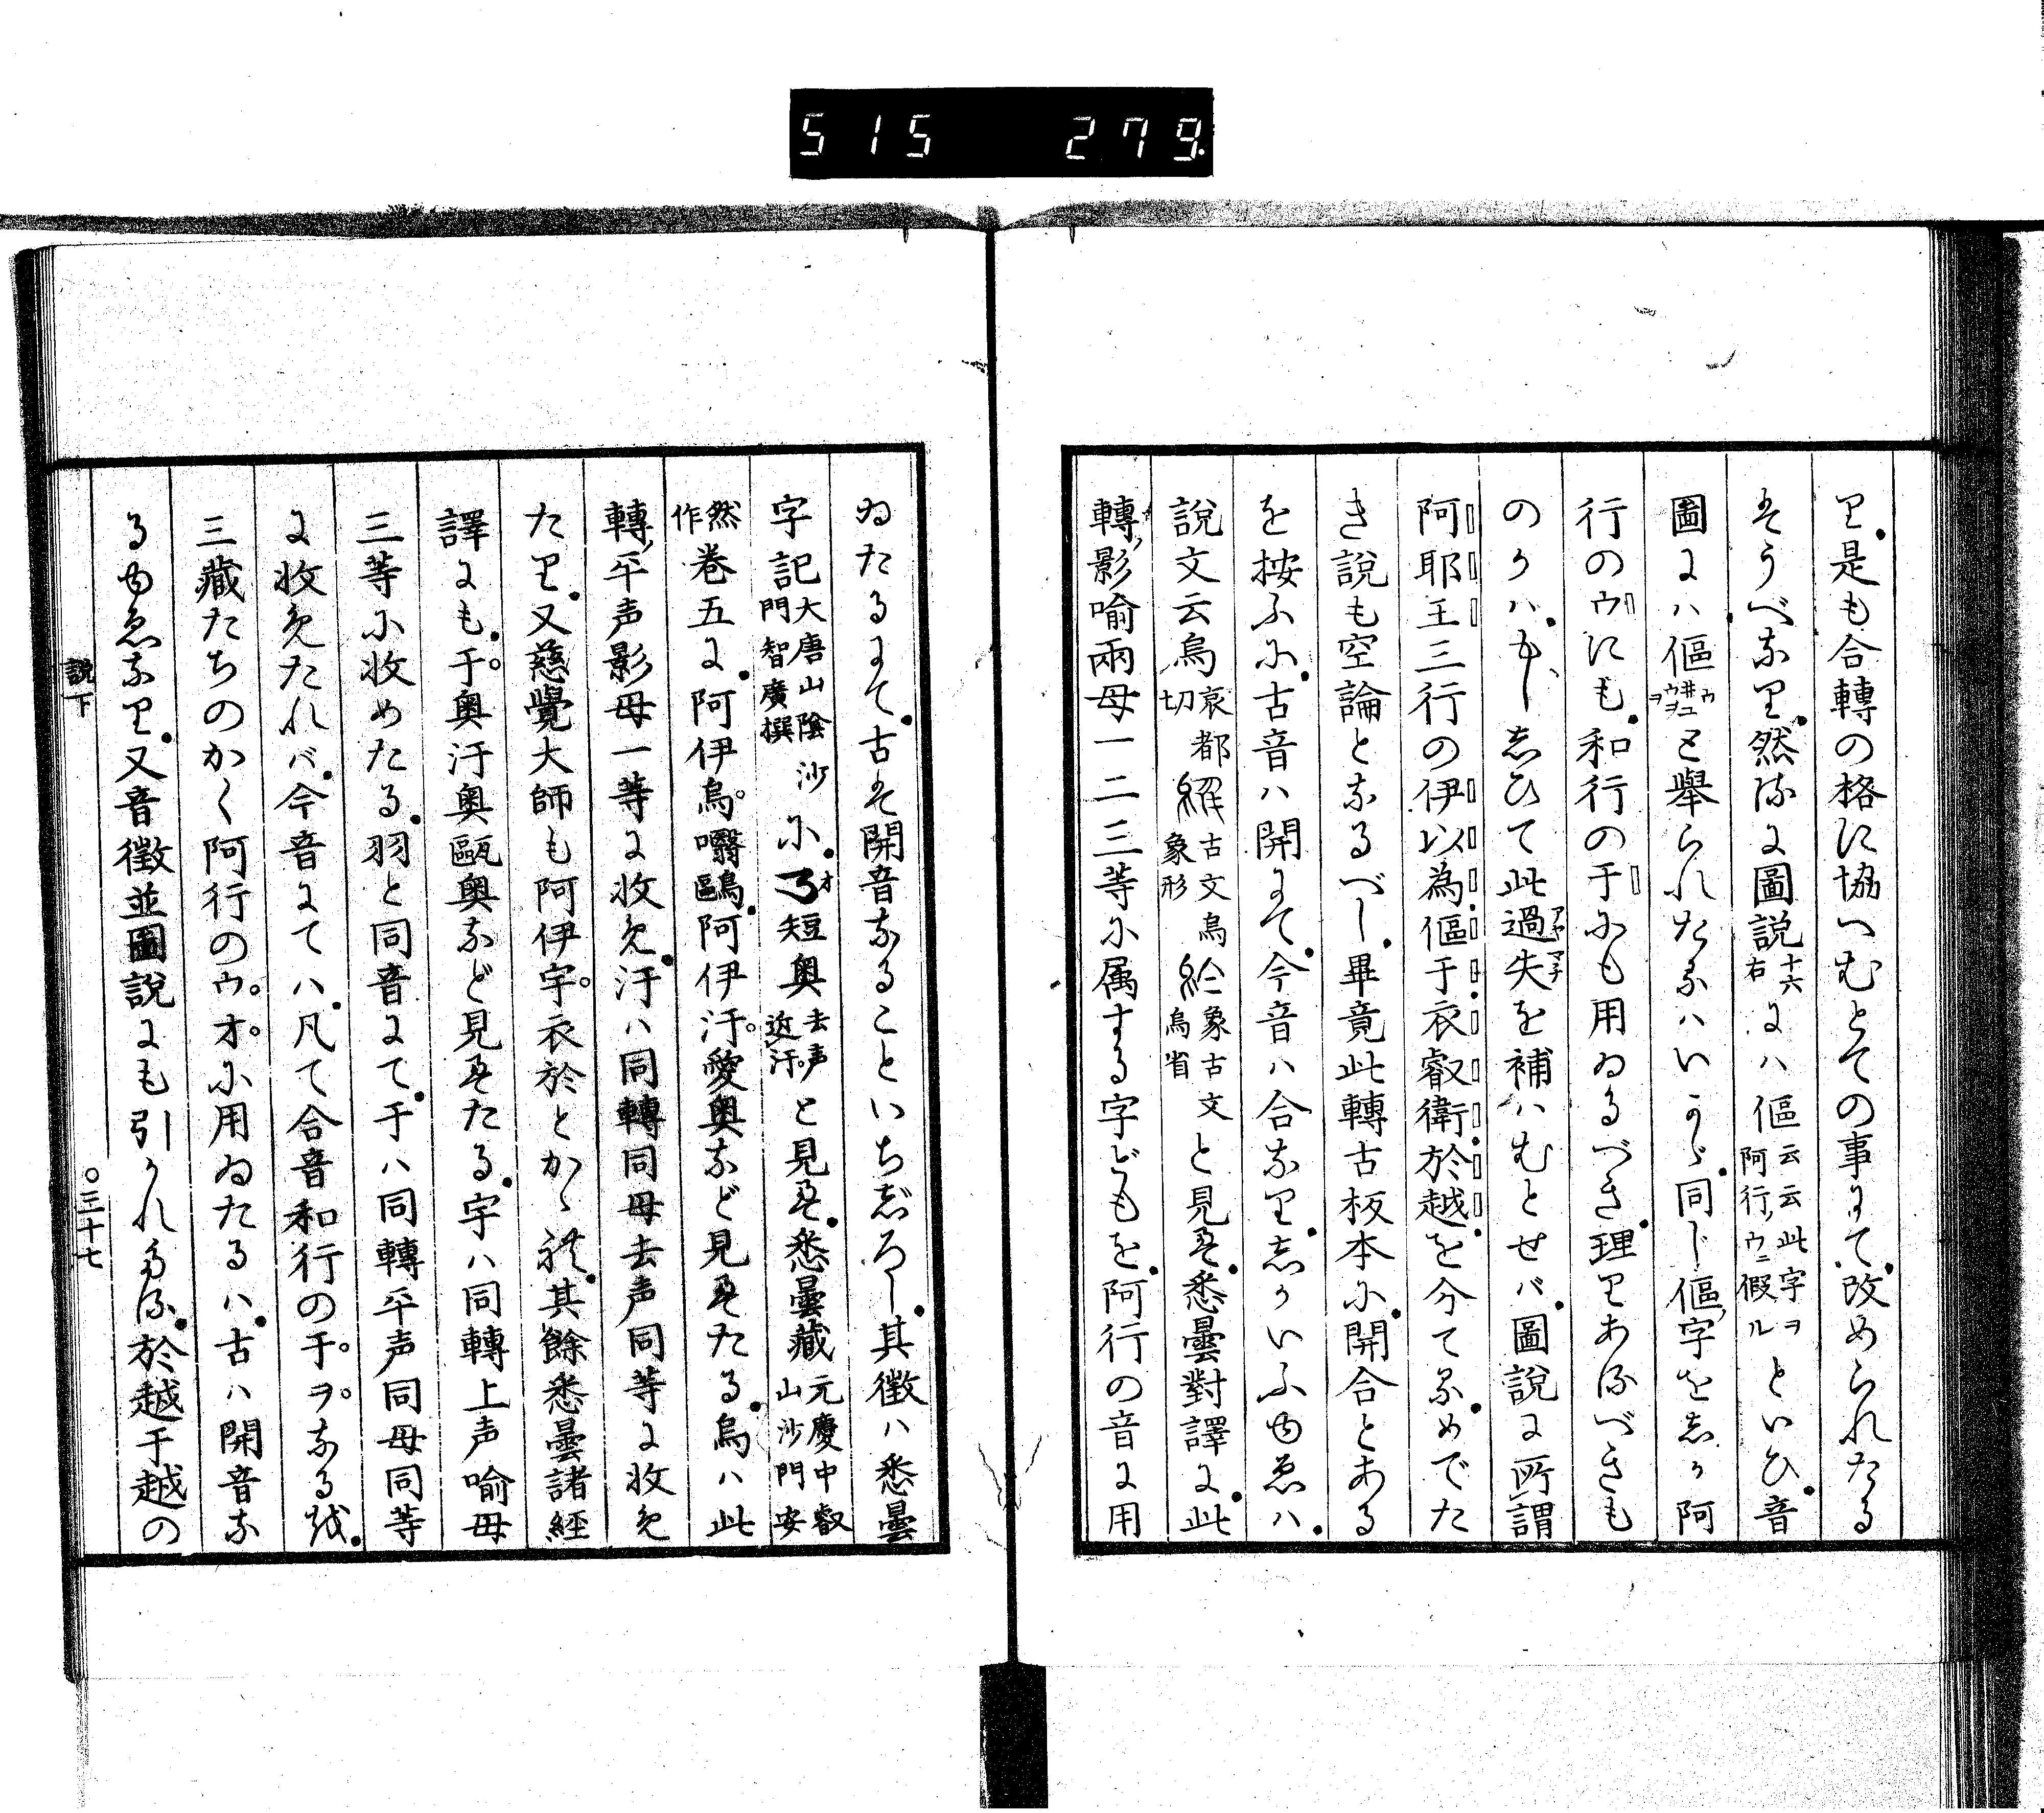 515 279
り是も合轉の格に協へむとての事にて改められたる
はうべなり然るに圖説十六右には傴云云此字ヲ阿行ノウニ假ルといひ音
圖には傴ウ井ユウヲヲと擧られたるはいかゞ同じ傴字をしか阿
行のウにも和行の于にも用ゐるべき理りあるべきも
のかはもししひて此過失アヤマチを補はむとせバ圖説に所謂
阿耶王三行の伊以為傴于衣叡衛於越を分てるめでた
き説も空論となるべし畢竟此轉古板本に開合とある
を按ふに古音ハ開にて今音ハ合なりしかいふゆゑハ
説文云烏哀都切古文烏象形象古文烏省と見え悉曇對譯に此
轉影喻兩母一二三等に属する字どもを阿行の音に用
ゐたるにて古は開音なることいちじろし其徴ハ悉曇
字記大唐山陰沙門智廣撰に オ短奥去声近汙と見え悉曇藏元慶中叡山沙門安
然作巻五に阿伊烏嚼鷗阿伊汙愛奥など見えたる烏ハ此
轉平声影母一等に收め汙ハ同轉同母去声同等に收め
たり又慈覺大師も阿伊宇衣於とかゝれ其餘悉曇諸經
譯にも于奥汙奥甌奥など見えたる宇ハ同轉上声喻母
三等に收めたる羽と同音にて于ハ同轉平声同母同等
に收めたれバ今音にてハ凡て合音和行の于ヲなる故
三藏たちのかく阿行のウオに用ゐたるハ古ハ開音な
るゆゑなり又音徴並圖説にも引かれたる於越于越の
説下
〇三十七